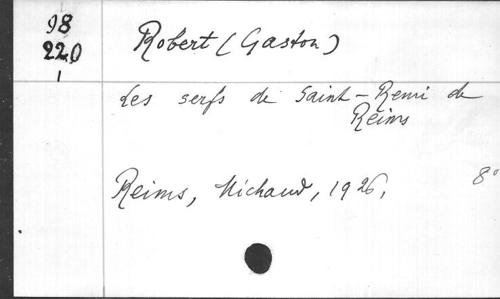 98
220
Robert (Gaston)
Les serfs de Saint-Remi de
Reims
Reims, Michaud, 1926, 8°